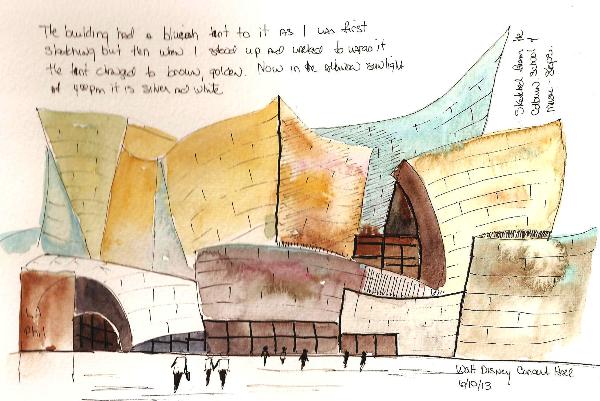 The building had a blueish tint to it as I was first
sketching but then when I stood up and walked to it
the tint changed to brown, golden. Now in the afternoon sunlight
of 4:00pm it is silver and white
Sketched from the
Colburn School of
Music - steps.
LA
Phil
Walt Disney Concert Hall
6/10/13